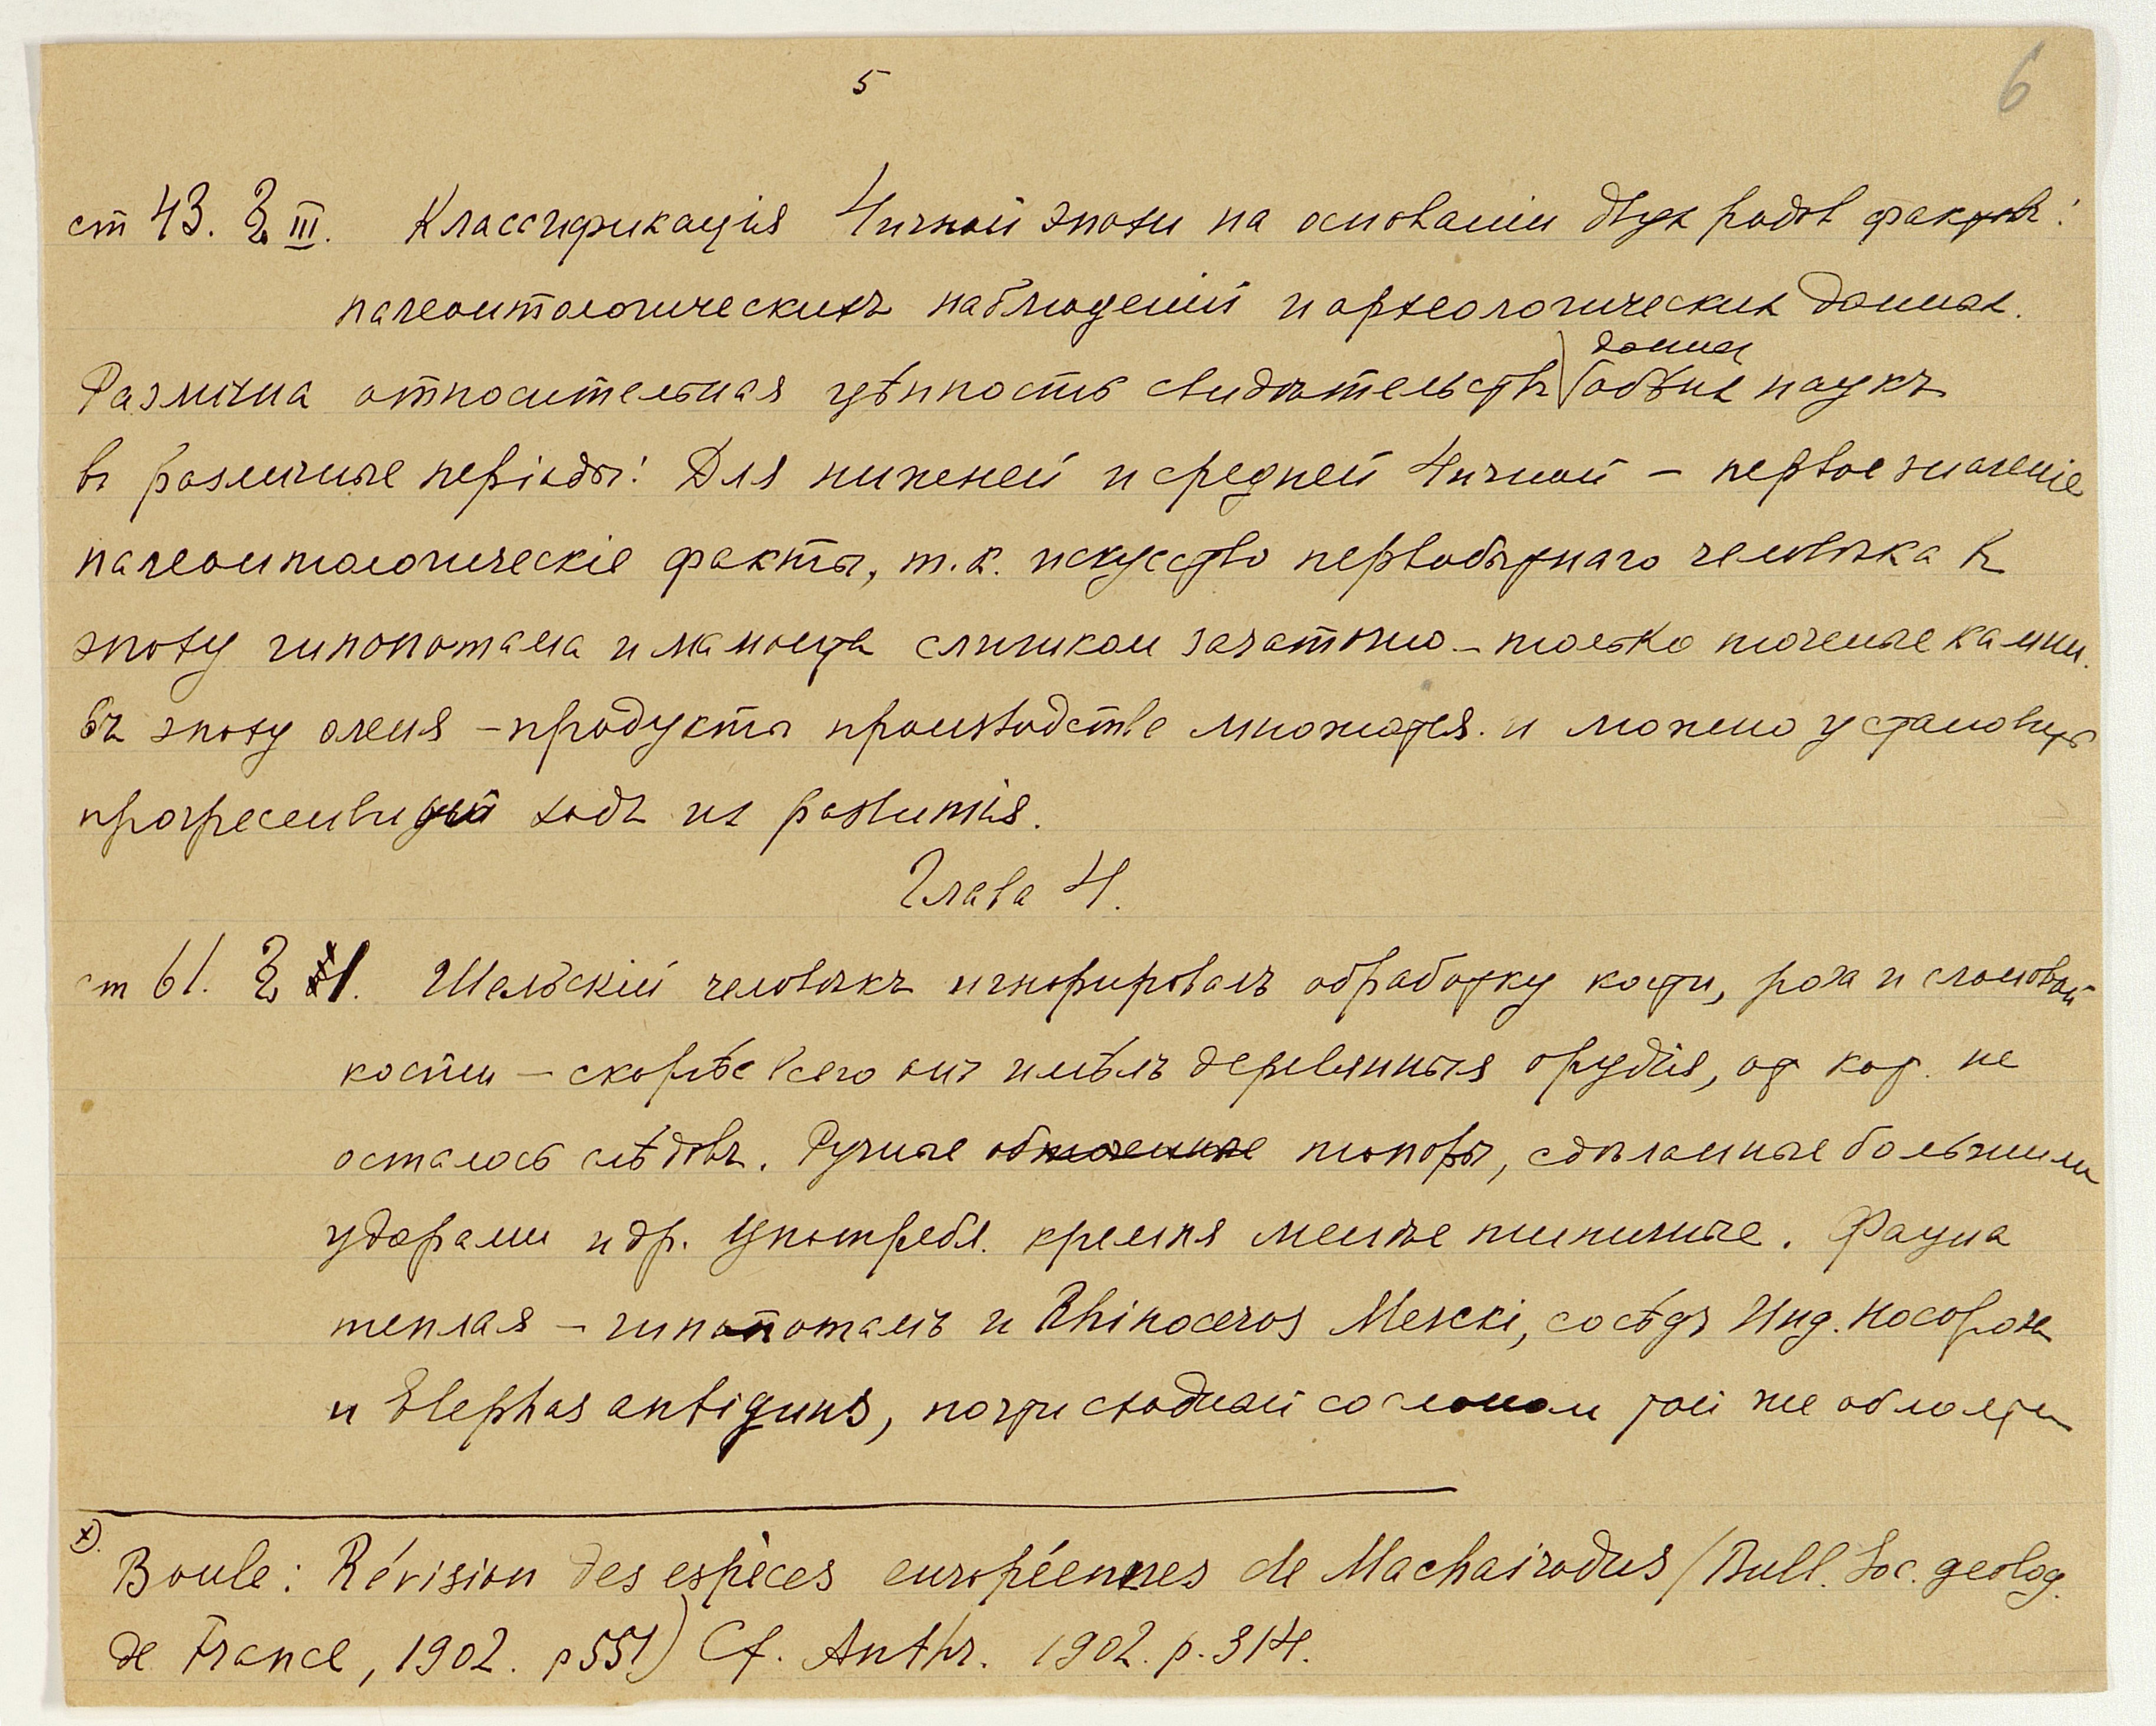 5
6
ст 43. § III. Классификація 4ичной эпохи на основаніи двух родов фактов:
палеонтологическихъ наблюденій и археологических данных.
данных
Различна относительная цѣнность свидѣтельствъ обѣих наукъ
въ различные періоды: Для нижней и средней 4ичной – первое значеніе
палеонтологическіе факты, т.к. искусство первобытнаго человѣка въ
эпоху гипопотама и мамонта слишком зачаточно – только точеные камни.
Въ эпоху оленя – продукты производства множатся и можно установить
прогрессивный ходъ их развитія.
Глава 4.
ст 61. § 1. Шельскій человѣкъ игнорировалъ обработку кости, рога и слоновой
кости – скорѣе всего онъ имѣлъ деревянныя орудія, от кот. не
осталось слѣдовъ. Ручные топоры, сдѣланные большими
ударами и др. употребл. кремня менѣе типичные. Фауна
теплая – гипопотамъ и Rhinoceros Mercki, сосѣдъ Инд. носорога
и Elephas antiquus, почти сходный со слоном той же области
x) Boule: Révision des espèces européennes de Machairodus (Bull. Soc. geolog.
de France, 1902. p 551) Cf. Anthr. 1902. p. 314.